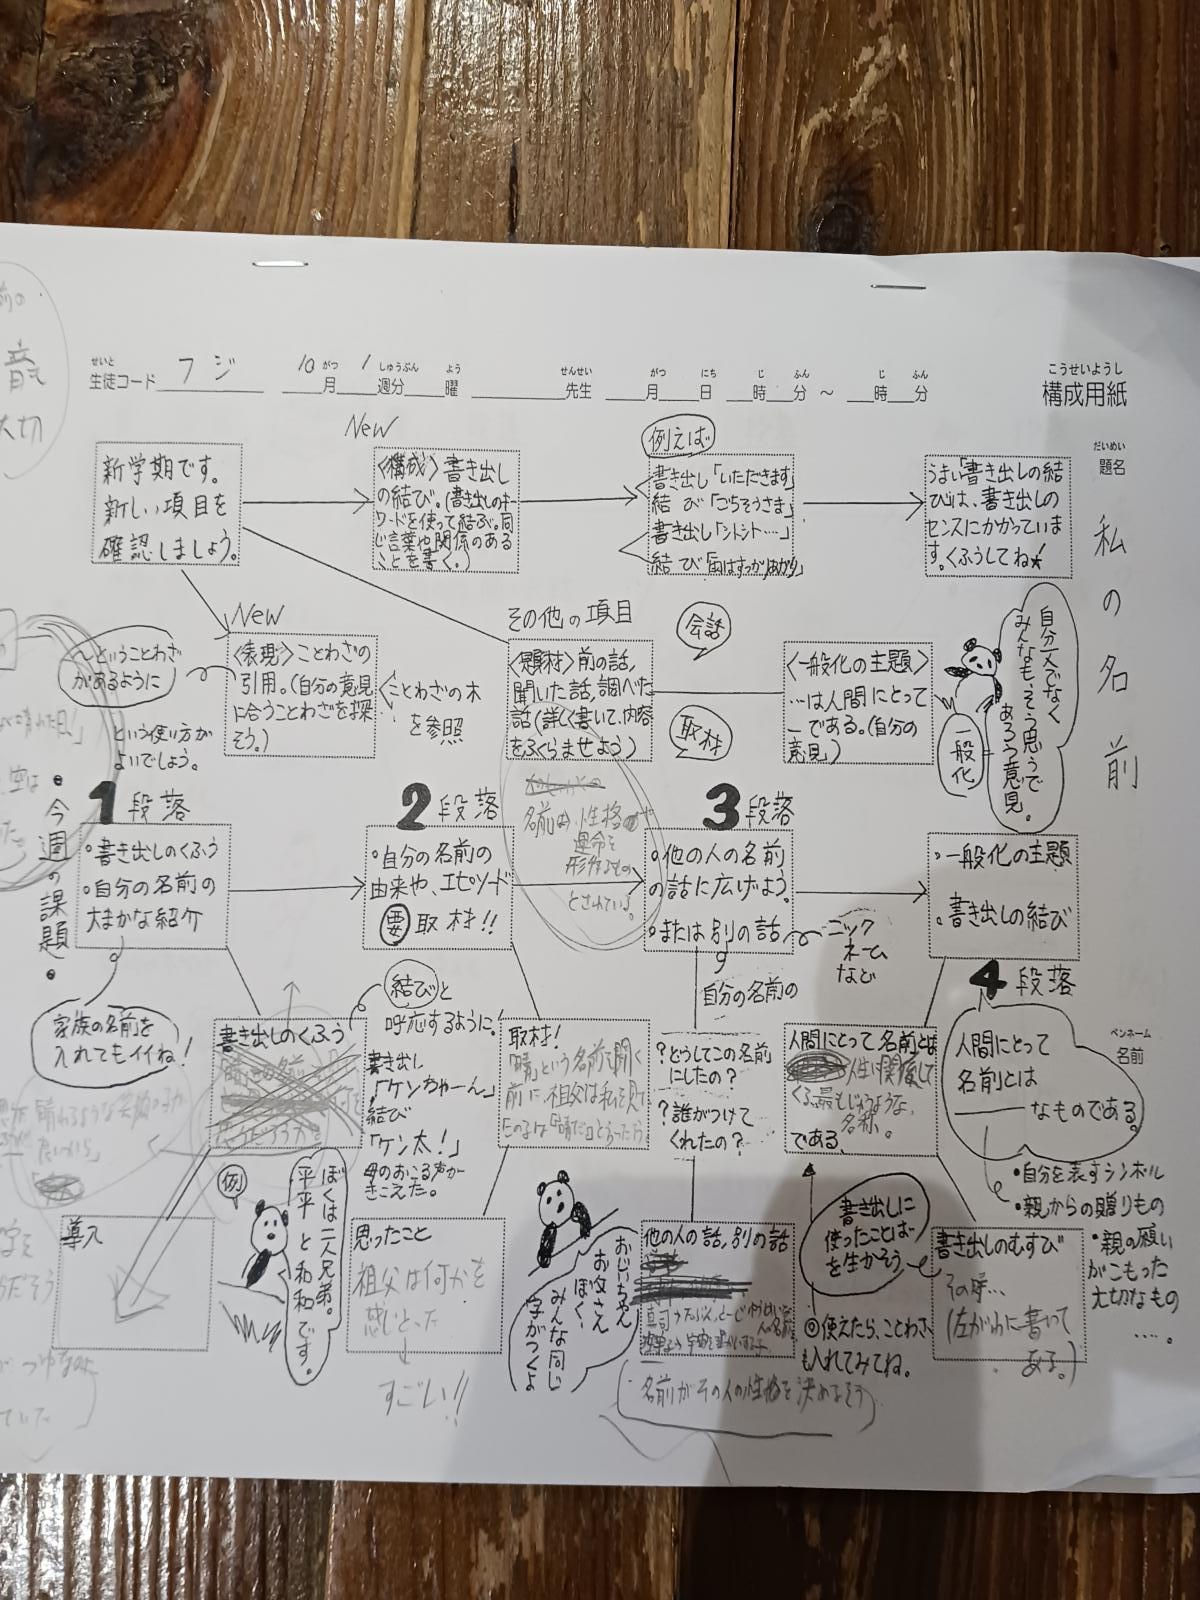 せいと
生徒コード フジ
10 がつ 1 しゅうぶん よう
月 週分 曜
せんせい
先生
がつ にち じ ふん じ ふん
月 日 時 分 ～ 時 分
こうせいようし
構成用紙
だいめい
題名
私の名前
ペンネーム
名前
新学期です。
新しい項目を
確認しましょう。
New
〈構成〉書き出し
の結び。(書き出しのキー
ワードを使って結ぶ。同
じ言葉や関係のある
ことを書く。)
例えば
書き出し「いただきます」
結 び「ごちそうさま」
書き出し「シトシト……」
結 び「雨はすっかりあがり」
うまい「書き出しの結
びは、書き出しの
センスにかかっていま
す。くふうしてね★
New
〜ということわざ
があるように
という使い方が
よいでしょう。
〈表現〉ことわざの
引用。(自分の意見
に合うことわざを探
そう。)
ことわざの本
を参照
その他の項目
〈題材〉前の話、
聞いた話、調べた
話(詳しく書いて、内容
をふくらませよう)
会話
取材
〈一般化の主題〉
…は人間にとって
―である。(自分の
意見)
一般化
自分一人でなく
みんなもそう思うで
あろう意見。
・今週の課題・
1段落
・書き出しのくふう
・自分の名前の
大まかな紹介
家族の名前を
入れてもイイね!
2段落
・自分の名前の
由来や、エピソード
要 取材!!
名前は、性格や
運命を
形作るもの
とされている。
3段落
・他の人の名前
の話に広げよう。
・または別の話
ニック
ネーム
など
自分の名前の
・一般化の主題
・書き出しの結び
4段落
人間にとって
名前とは
なものである。
・自分を表すシンボル
・親からの贈りもの
・親の願い
がこもった
大切なもの
….
書き出しのくふう
結びと
呼応するように。
書き出し
「ケンちゃーん」
結び
「ケン太!」
母のおこる声が
きこえた。
取材!
「晴」という名前を聞く
前に、祖父は私を見て
?どうしてこの名前
にしたの?
?誰がつけて
くれたの?
人間にとって名前とは
人生に関係して
名称。
である。
導入
例
ぼくは二人兄弟。
平平と和和です。
思ったこと
祖父は何かを
感じとった
すごい!!
おじいちゃん
お父さん
ぼく、
みんな同じ
字がつくよ
他の人の話,別の話
名前がその人の性格を決めるそう
書き出しに
使ったことば
を生かそう。
◎使えたら、ことわざ
も入れてみてね。
書き出しのむすび
その時…
(左がわに書いて
ある。)